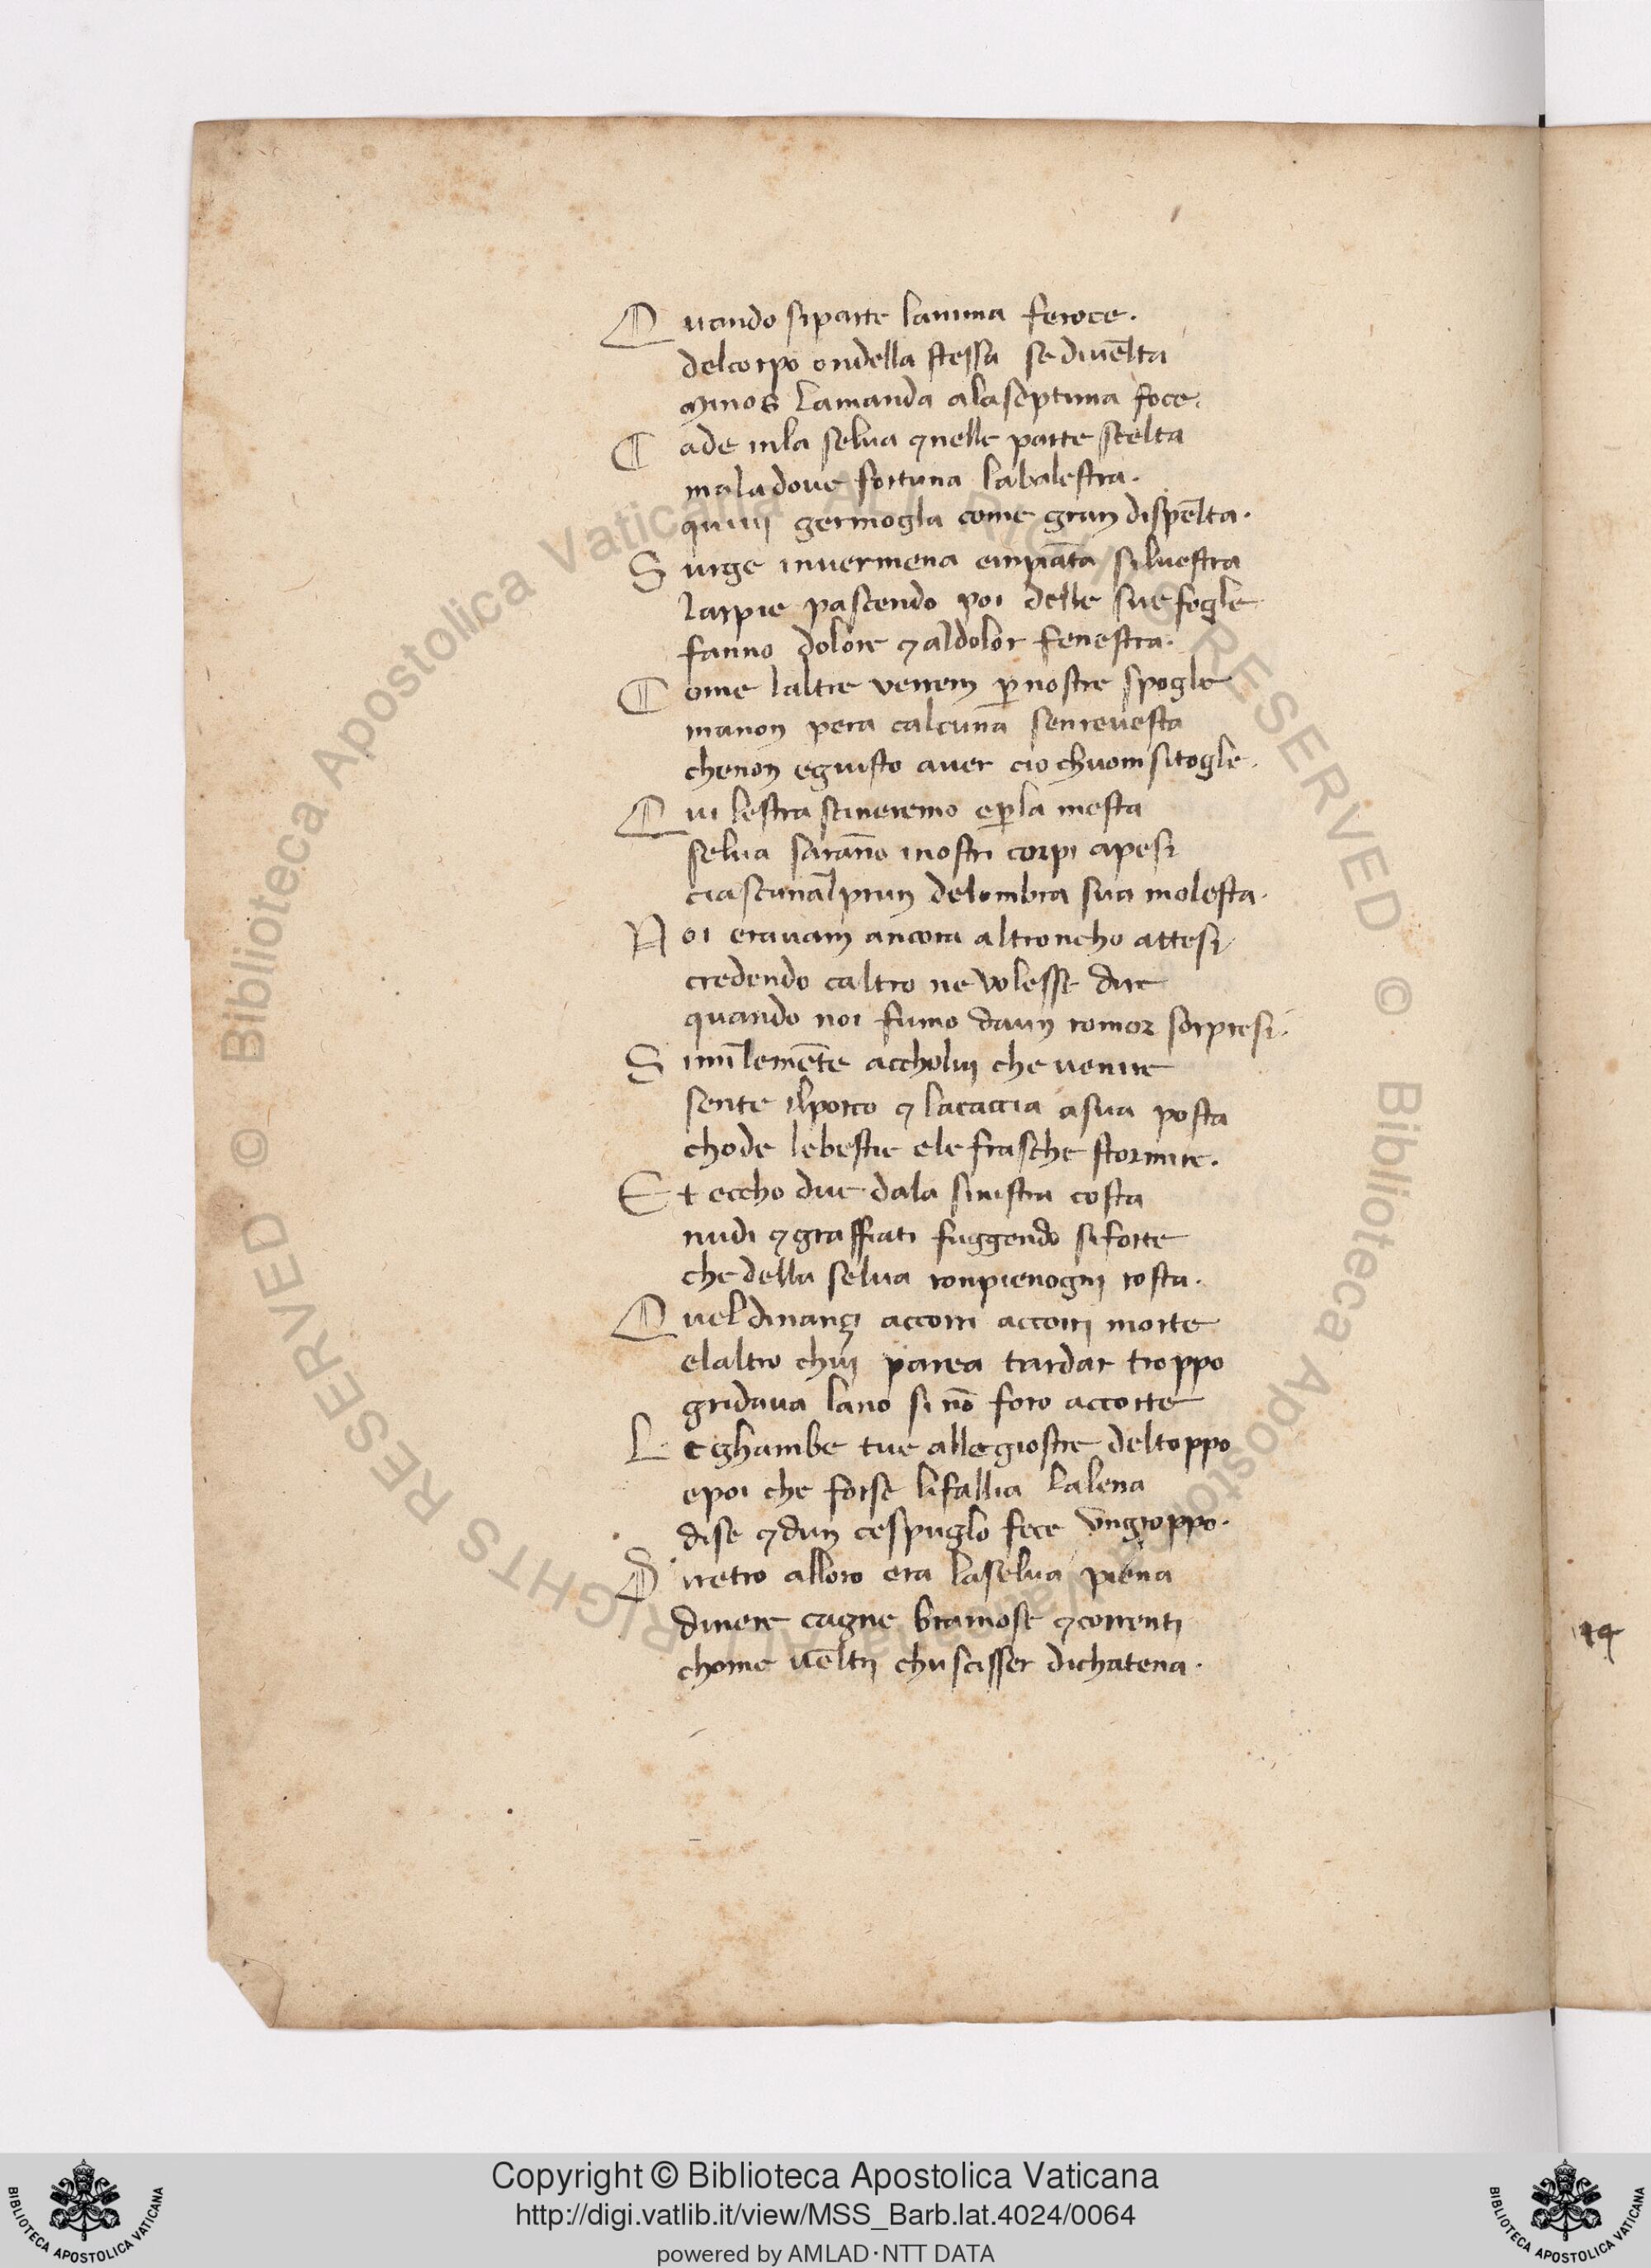 Quando siparte lanima feroce.
delcorpo ondella stessa se divēlta
minos lamanda alaseptima foce.
Cade inla selva ⁊nelle parte scelta
maladove fortuna labalestra.
quiuj germogla come gran dispēlta.
Surge invermena einpiāta siluestra
larpie pascendo poi delle sue fogle
fanno dolore ⁊aldolor fenestra.
Come laltre verrem ꝑnostre spogle
manon pera calcuna senrevesta
chenon egiusto aver cio chuom sitogle.
Qui lestrascineremo eꝑla mesta
selua sarāno inostri corpi apesi
ciascunalprun delombra sua molesta.
Noi eravam ancora altroncho attesi
credendo caltro ne volesse dire
quando noi fumo daun romor sorpresi.
Similemēte accholuj che venire
sente ilporco ⁊ lacaccia asua posta
chode lebestie ele frasche stormire.
Et eccho due dala sinistra costa
nudi ⁊graffiati fuggendo siforte
che della selua ronpienognj rosta.
Queldinançj accorri accorrj morte
elaltro chuj parea tardar troppo
gridaua lano si nō foro accorte
Le ghambe tue allegiostre deltoppo
epoi che forse lifallia lalena
dise ⁊dun cespuglo fece ungroppo.
Diretro alloro era laselua piena
dinere cagne bramose ⁊correntj
chome vēltrj chuscisser dichatena.
© Biblioteca Apostolica Vaticana ALL RIGHTS RESERVED © Biblioteca Apostolica Vaticana ALL RIGHTS RESERVED
Copyright © Biblioteca Apostolica Vaticana
http://digi.vatlib.it/view/MSS_Barb.lat.4024/0064
powered by AMLAD·NTT DATA
BIBLIOTECA APOSTOLICA VATICANA
BIBLIOTECA APOSTOLICA VATICANA